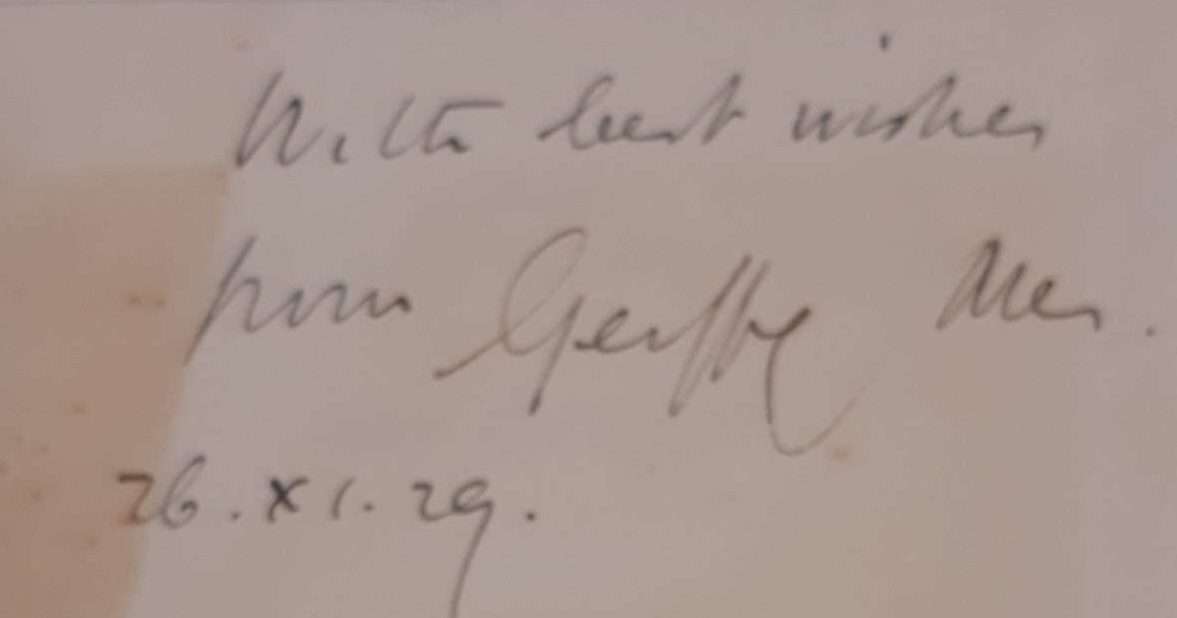 With best wishes
from Geoffrey
26.XI.29.